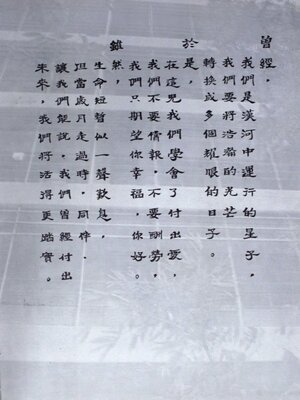 曾經,
我們,是漢河中運行的星子,
我們要將浩瀚的光芒
轉換成多個耀眼的日子。
於是,
在這兒我們學會了付出愛,
我們不要情報,不要酬勞,
我們只期望你幸福,你好。
雖然,
生命短暫似一聲歎息,
但當歲月走過時,同伴
讓我們能說,我們曾經付出
未來,我們將活得更踏實。